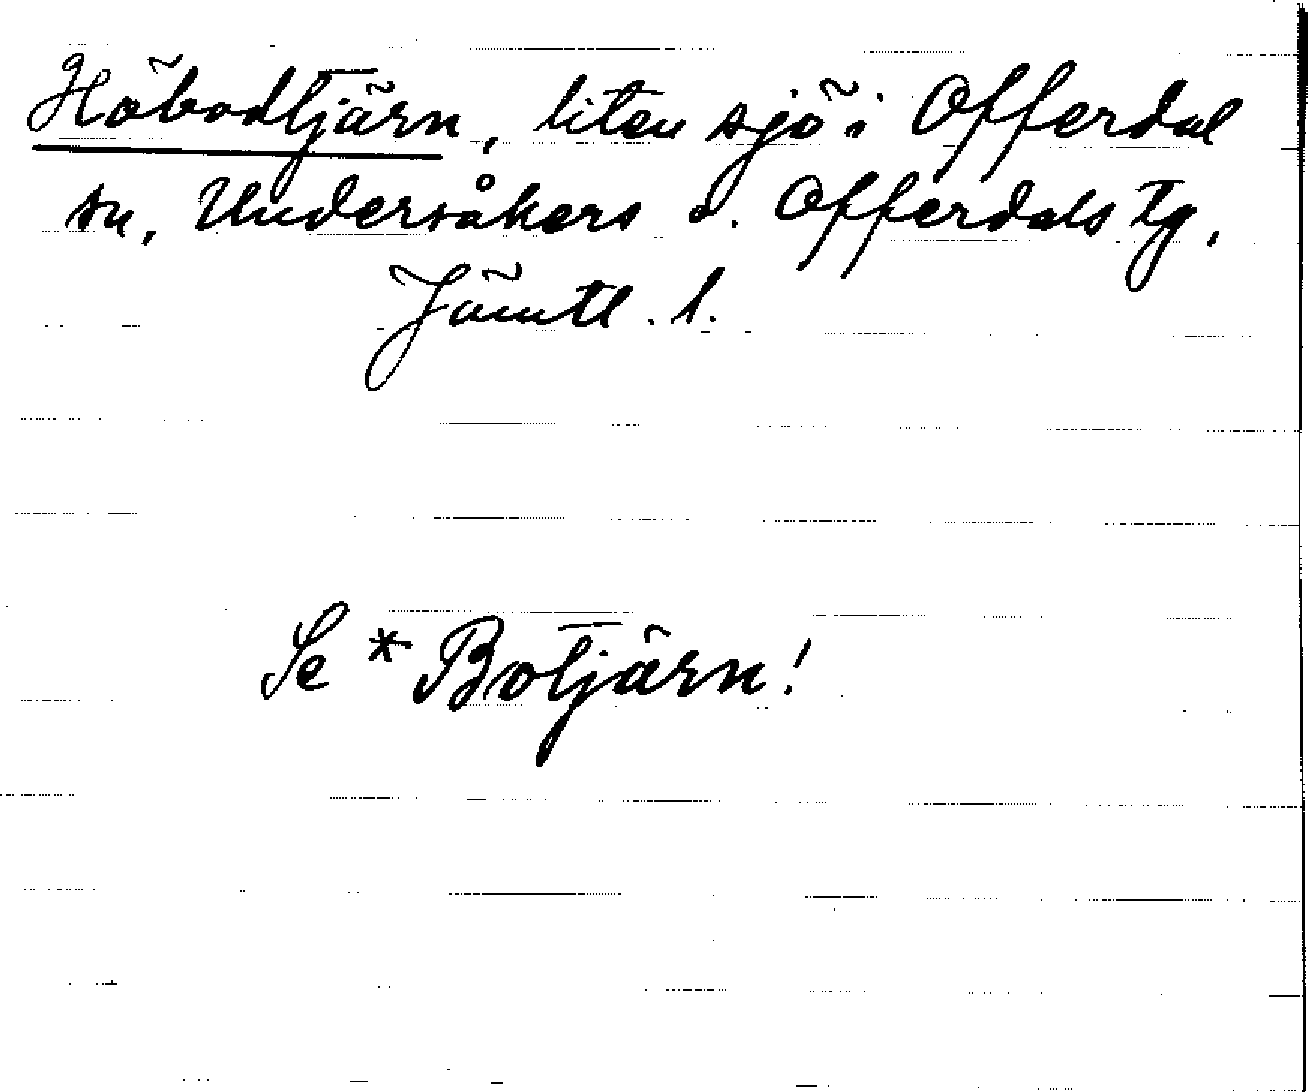 Höbodtjärn, liten sjö i Offerdal
sn, Undersåkers o. Offerdals tg,
Jämtl. l.
Se * Botjärn!